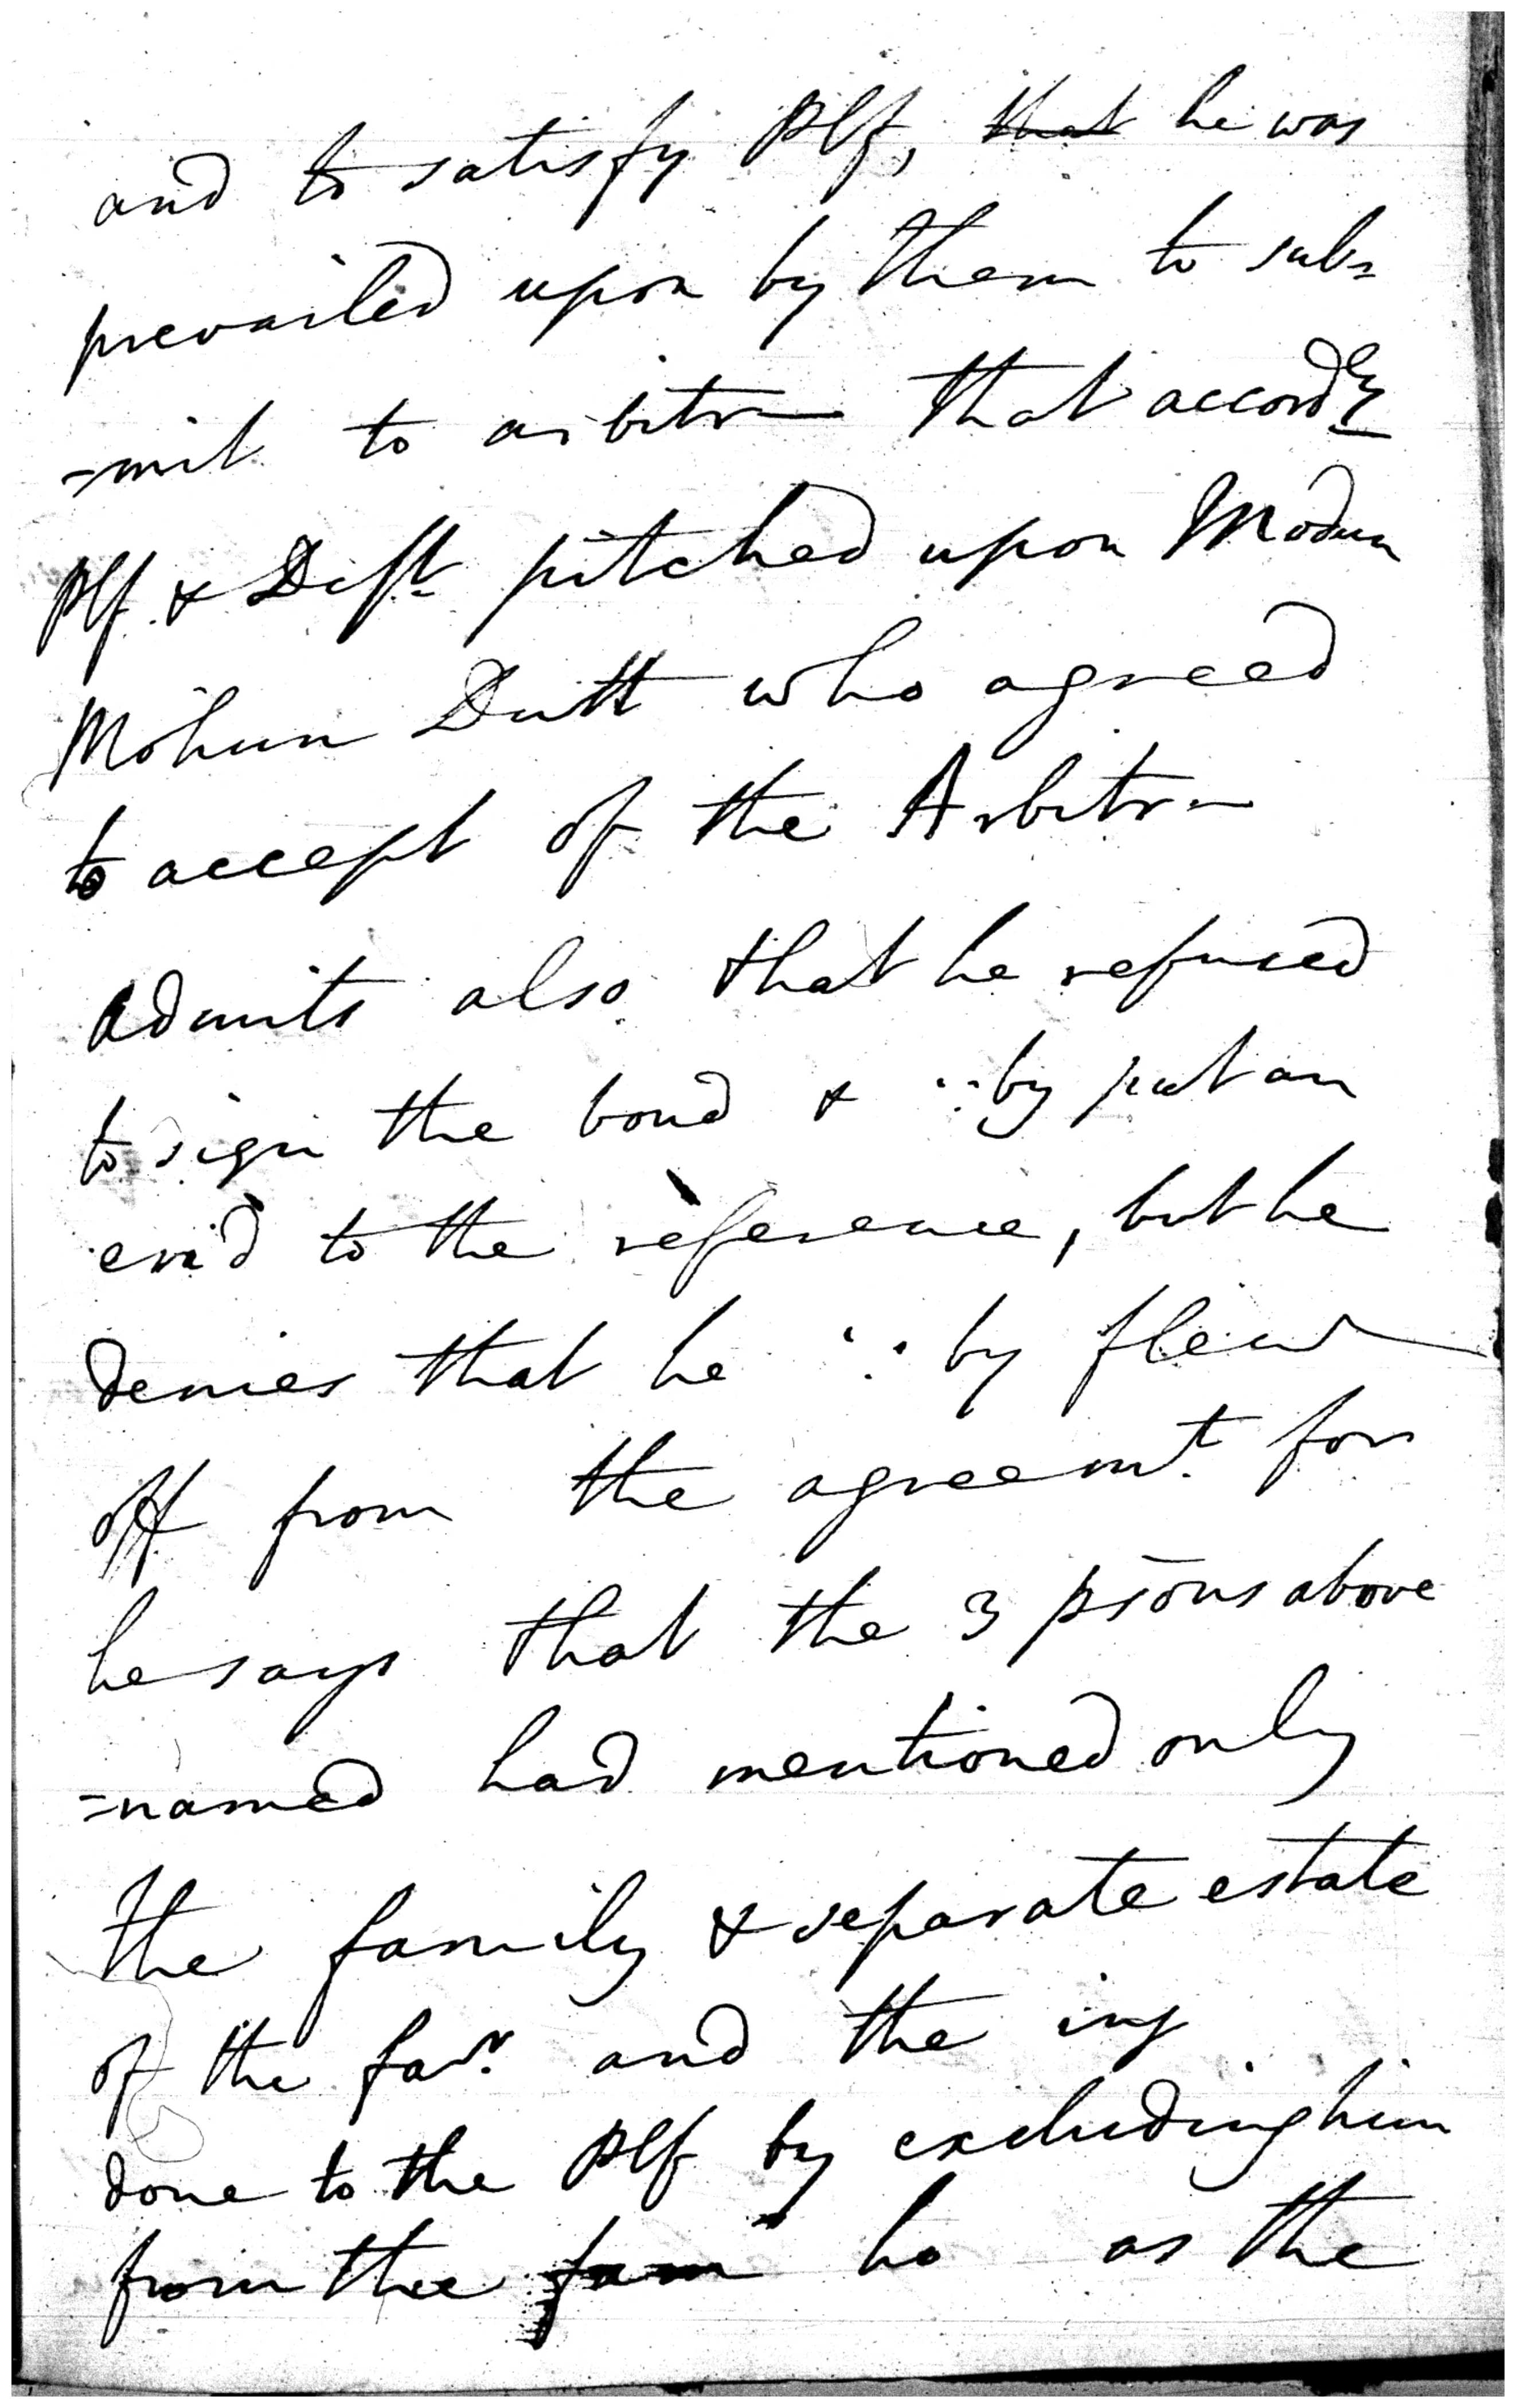 and to satisfy Plf, that he was
prevailed upon by them to sub=
=mit to arbitr— that accordly
Plf. & Deft pitched upon Modun
Mohun Dutt who agreed
to accept of the Arbitr—
Admits also that he refused
to sign the bond & ∵by put an
end to the reference, but he
denies that he ∵ by flew
off from the agreemt. for
he says that the 3 psons above
=named had mentioned only
the family & separate estate
of the far. and the inj
done to the Plf by excluding him
from the fam ho as the